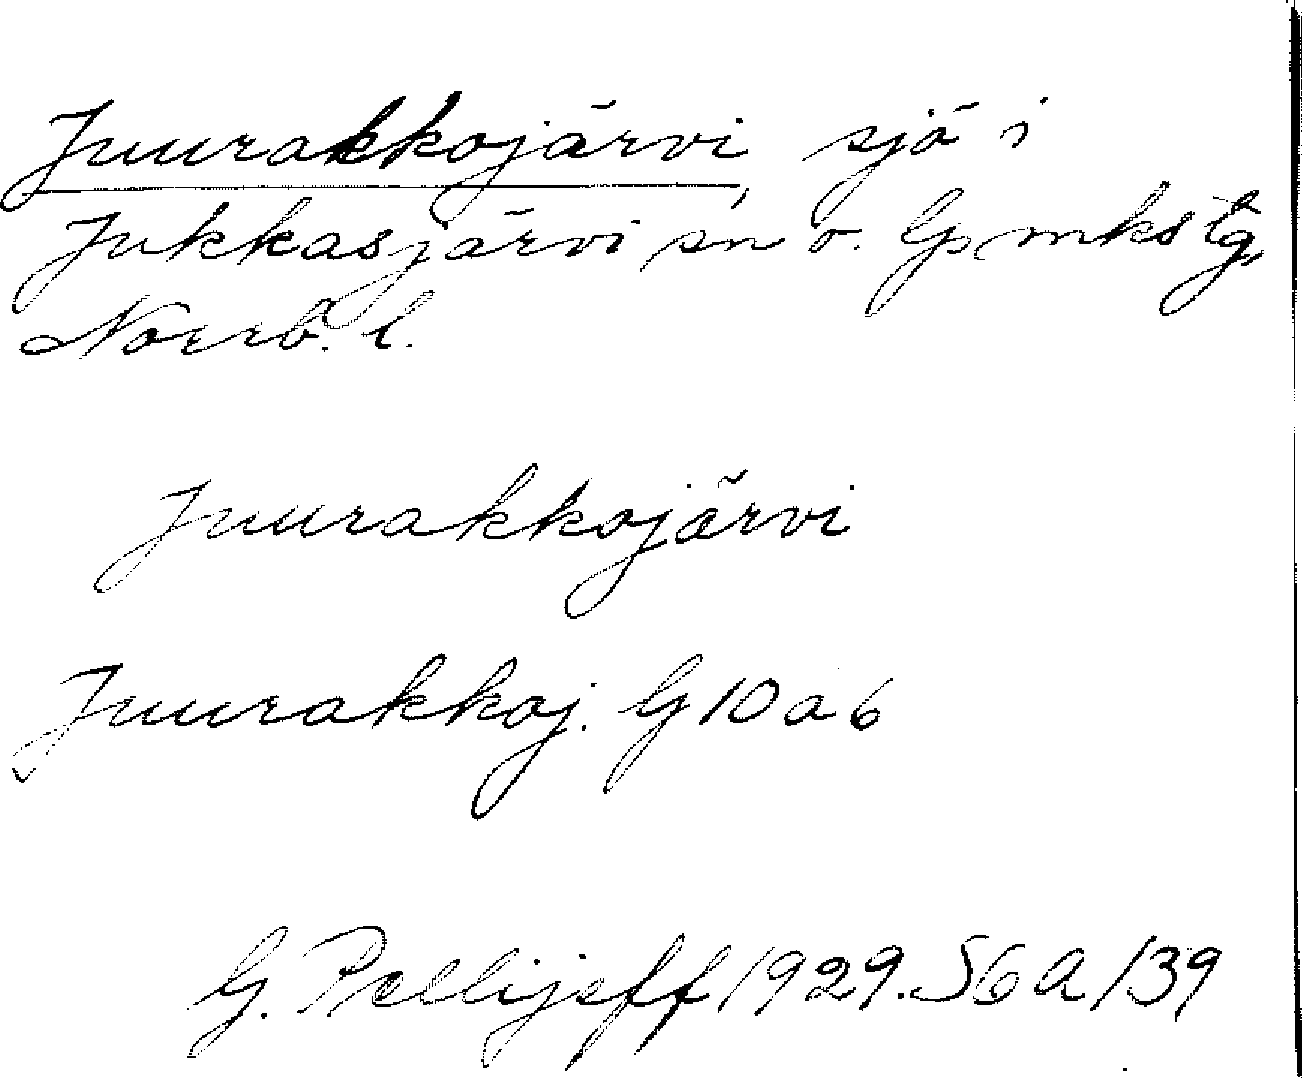 Juurakkojärvi, sjö i
Jukkasjärvi sn o. lpmkstg,
Norrb. l.
Juurakkojärvi
Juurakkoj. G 10 a 6
G. Pellijeff 1929. S6A/39